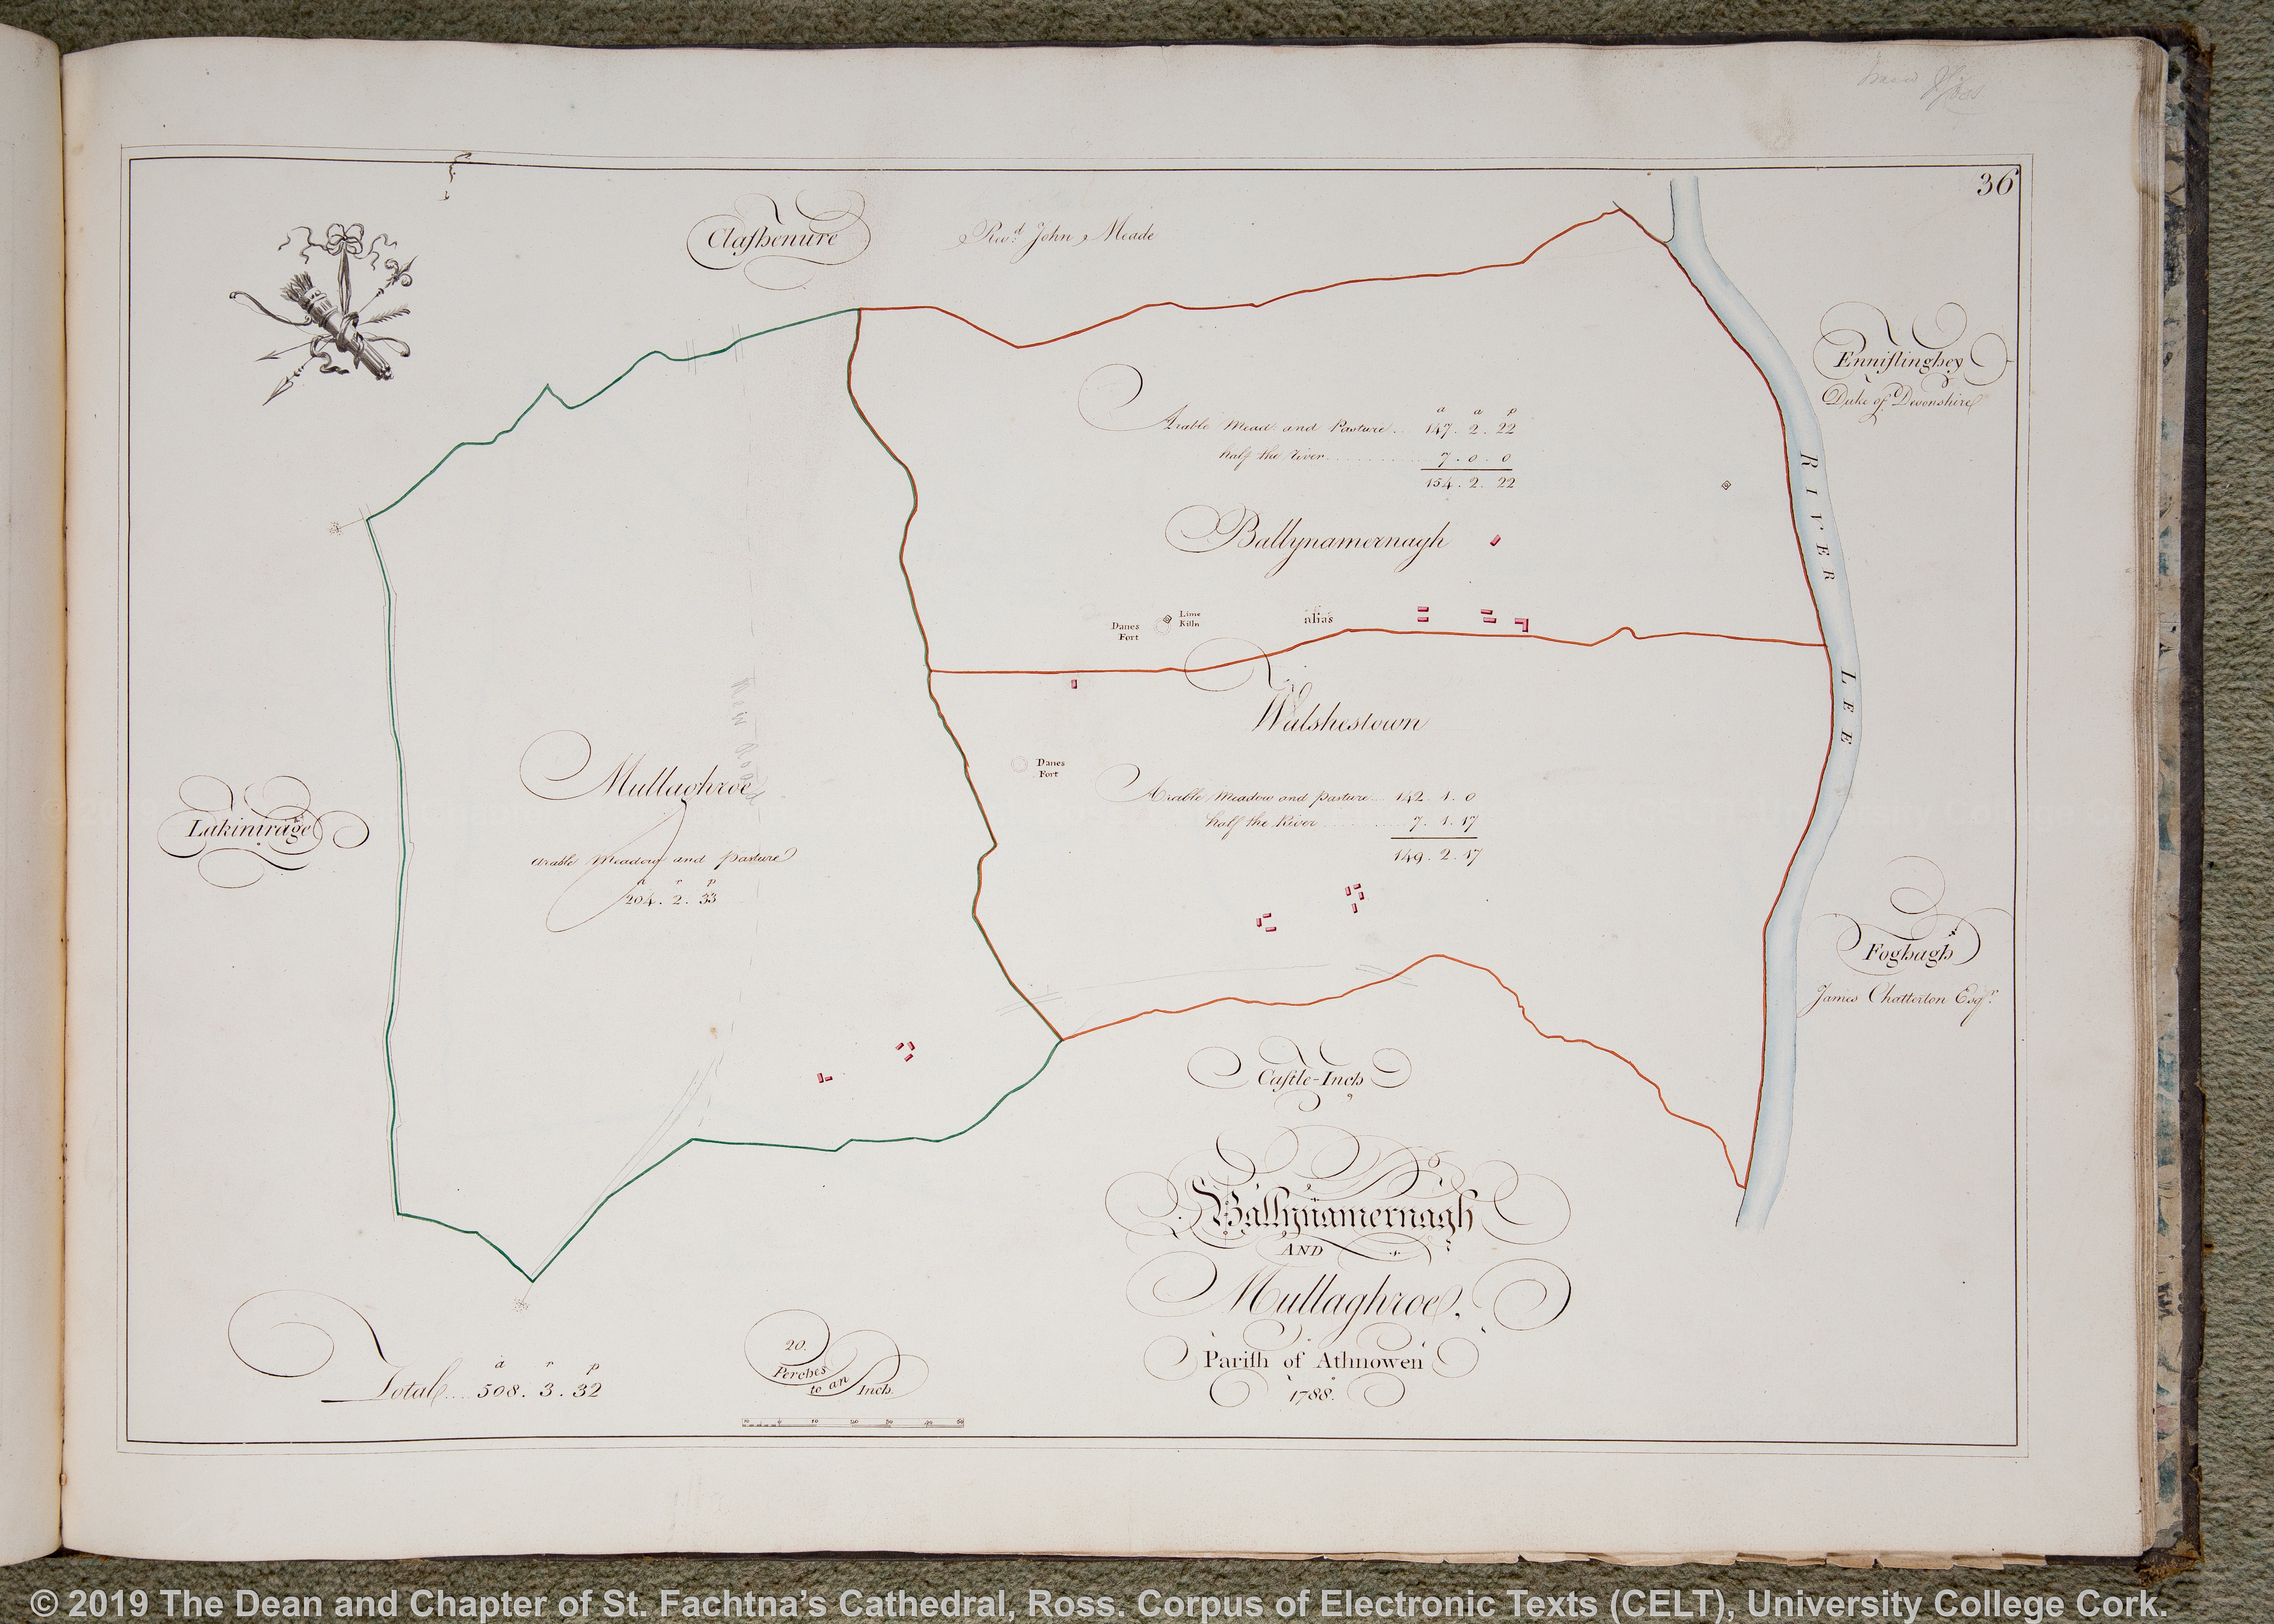 36
Clashenure
Revd. John Meade
Ennislinghey
Duke of Devonshire
a a p
Arable Mead and Pasture.. 147. 2. 22
half the river............ 7. 0. 0
154. 2. 22
Ballynamernagh
RIVER LEE
Danes
Fort
Lime
Kiln
alias
Walshestown
Danes
Fort
Arable, Meadow and pasture... 142. 1. 0
half the River............ 7. 1. 17
149. 2. 17
New Road
Mullaghroe
arable Meadow and pasture
a r p
204. 2. 33
Lakinirage
Foghagh
James Chatterton Esqr.
Castle-Inch
Ballynamernagh
AND
Mullaghroe,
Parish of Athnowen
1788.
a r p
Total.... 508. 3. 32
20.
Perches
to an Inch.
10 20 30 40
© 2019 The Dean and Chapter of St. Fachtna’s Cathedral, Ross. Corpus of Electronic Texts (CELT), University College Cork.